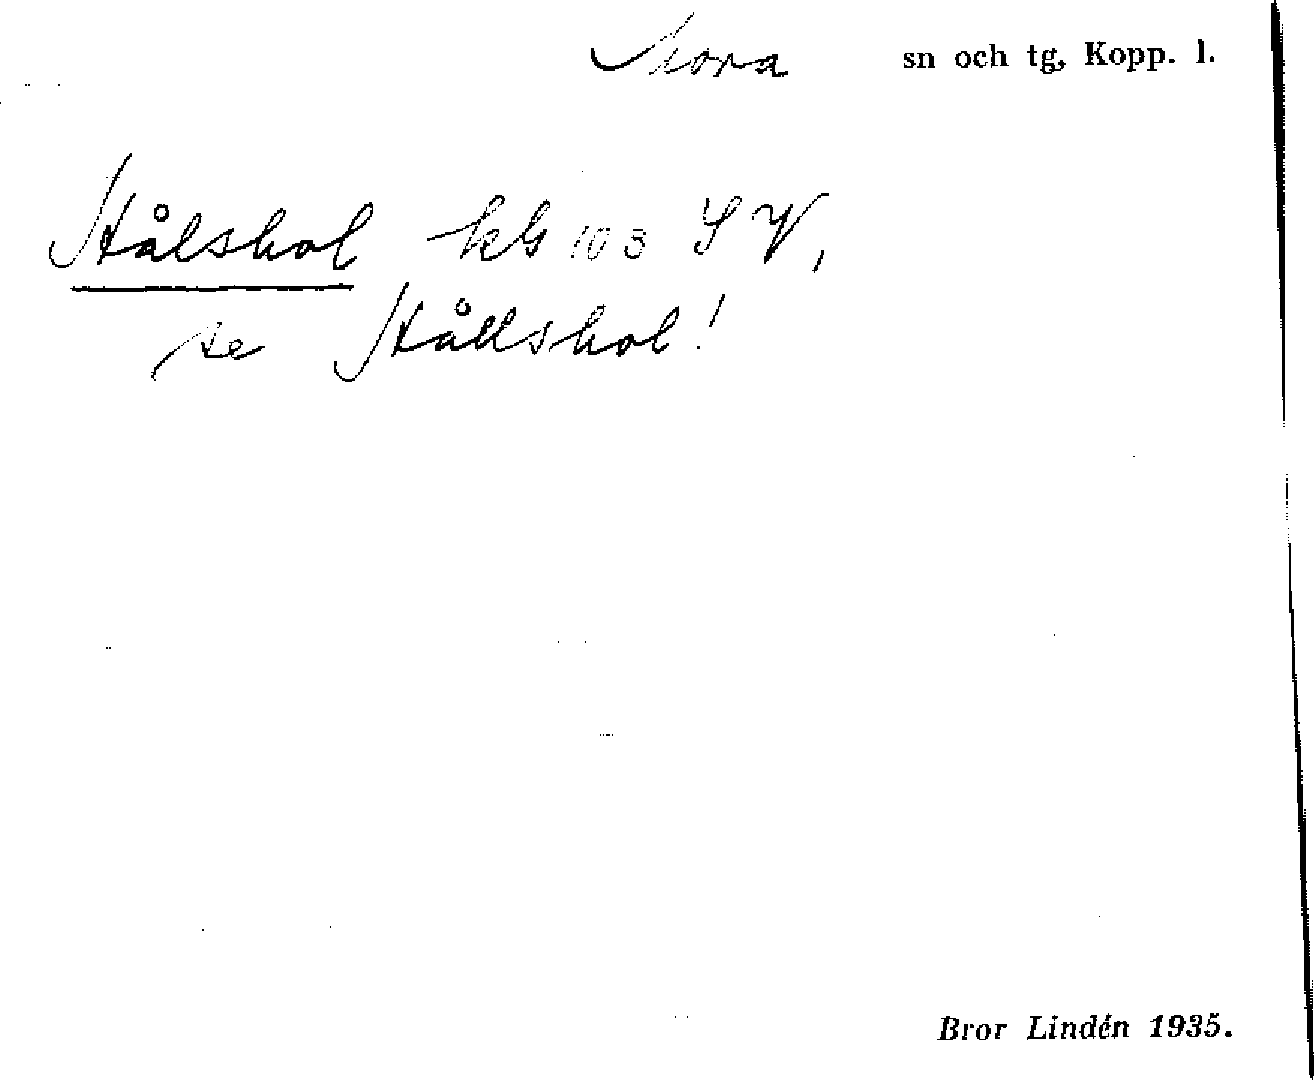 Mora sn och tg, Kopp. l.
Stålshol kG 103 SV,
se Stållshol!
Bror Lindén 1935.